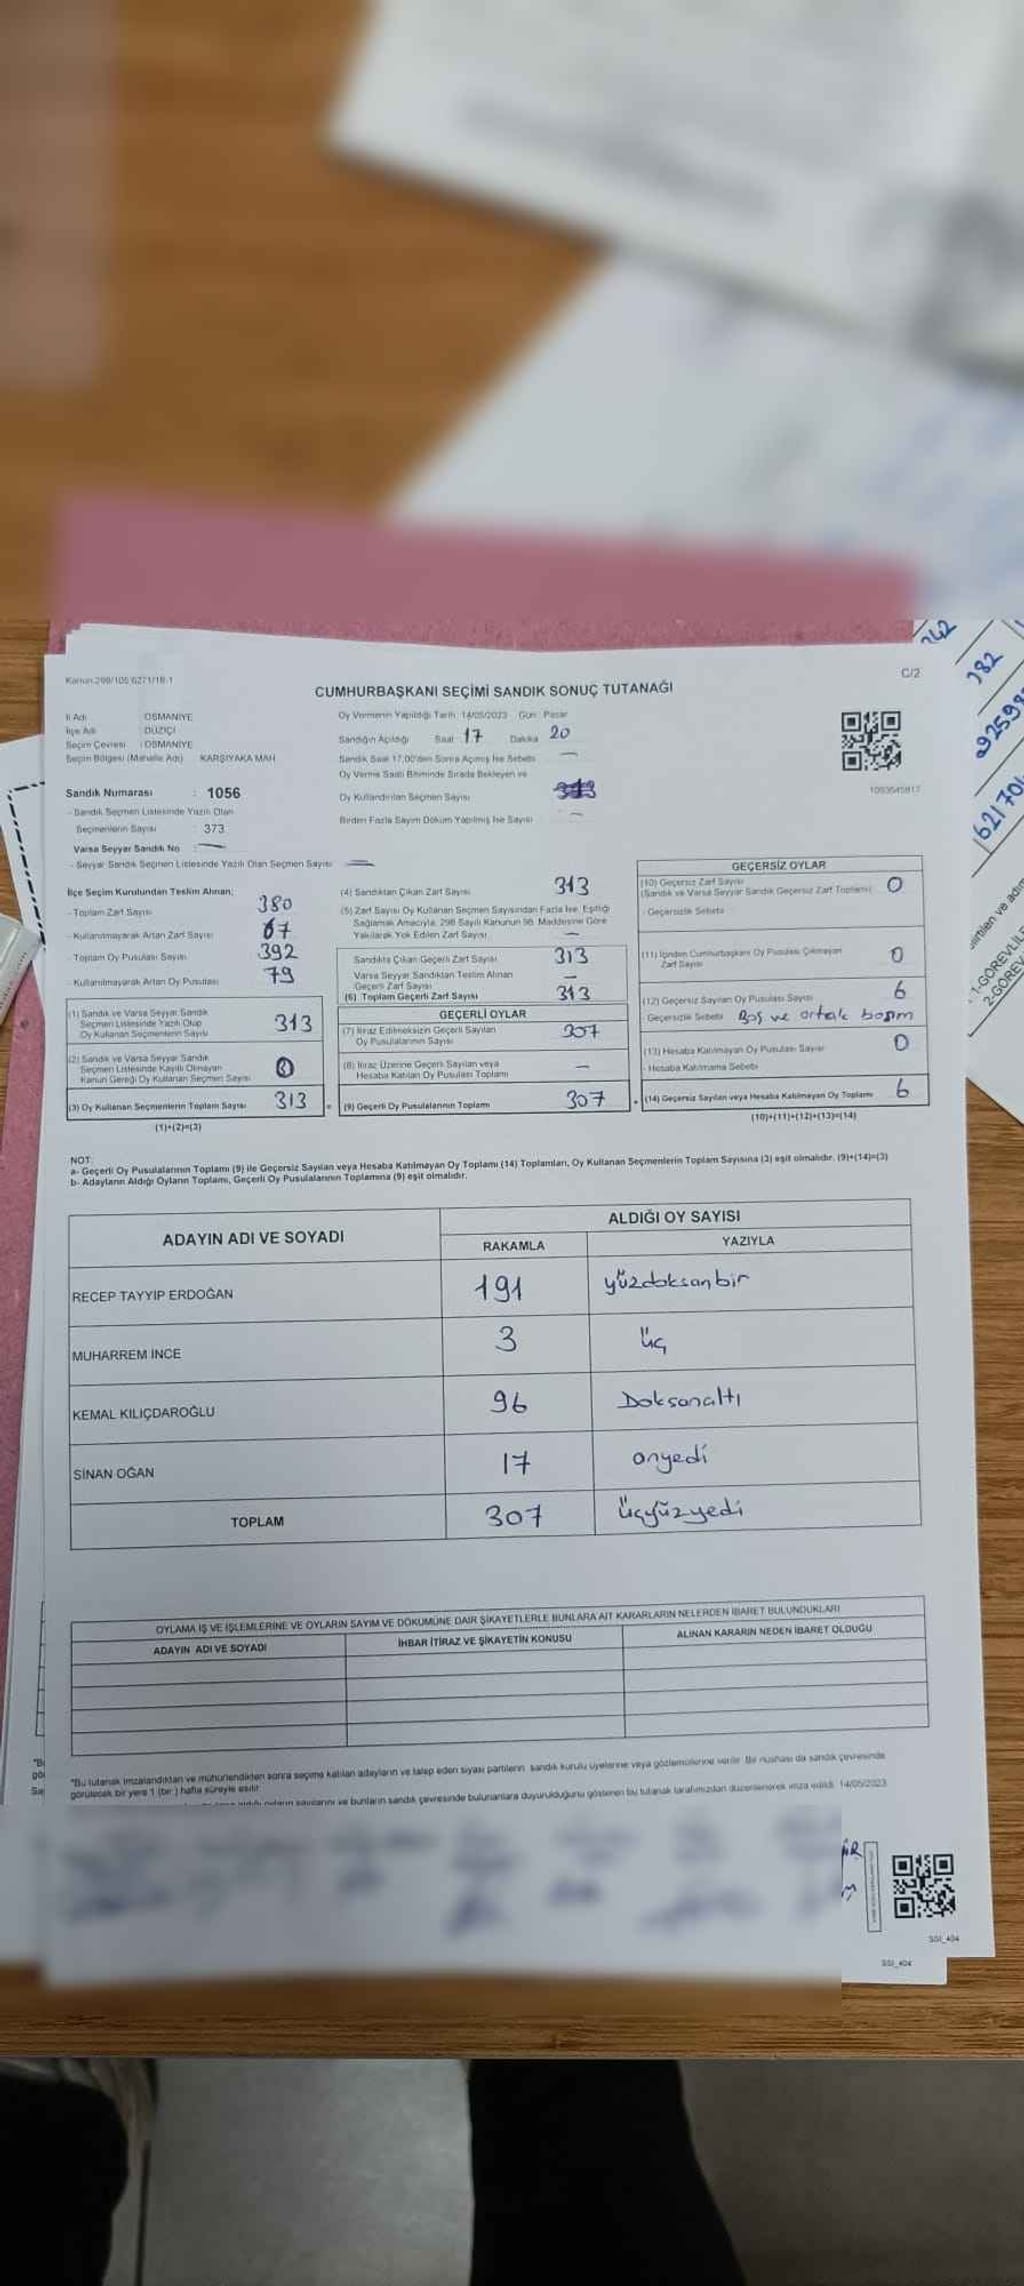 Kanun:298/105 6271/18-1
C/2
CUMHURBAŞKANI SEÇİMİ SANDIK SONUÇ TUTANAĞI
İl Adı : OSMANİYE
İlçe Adı : DÜZİÇİ
Seçim Çevresi : OSMANİYE
Seçim Bölgesi (Mahalle Adı) KARŞIYAKA MAH
Sandık Numarası : 1056
- Sandık Seçmen Listesinde Yazılı Olan
Seçmenlerin Sayısı : 373
Varsa Seyyar Sandık No : —
- Seyyar Sandık Seçmen Listesinde Yazılı Olan Seçmen Sayısı : —
Oy Vermenin Yapıldığı Tarih: 14/05/2023 Gün: Pazar
Sandığın Açıldığı Saat: 17 Dakika: 20
Sandık Saat 17.00'den Sonra Açılmış İse Sebebi —
Oy Verme Saati Bitiminde Sırada Bekleyen ve
Oy Kullandırılan Seçmen Sayısı
Birden Fazla Sayım Döküm Yapılmış İse Sayısı —
1093545917
İlçe Seçim Kurulundan Teslim Alınan;
- Toplam Zarf Sayısı 380
- Kullanılmayarak Artan Zarf Sayısı 67
- Toplam Oy Pusulası Sayısı 392
- Kullanılmayarak Artan Oy Pusulası 79
(1) Sandık ve Varsa Seyyar Sandık
Seçmen Listesinde Yazılı Olup
Oy Kullanan Seçmenlerin Sayısı 313
(2) Sandık ve Varsa Seyyar Sandık
Seçmen Listesinde Kayıtlı Olmayan
Kanun Gereği Oy Kullanan Seçmen Sayısı 0
(3) Oy Kullanan Seçmenlerin Toplam Sayısı 313
(1)+(2)=(3)
(4) Sandıktan Çıkan Zarf Sayısı 313
(5) Zarf Sayısı Oy Kullanan Seçmen Sayısından Fazla İse, Eşitliği
Sağlamak Amacıyla, 298 Sayılı Kanunun 98. Maddesine Göre
Yakılarak Yok Edilen Zarf Sayısı —
Sandıkta Çıkan Geçerli Zarf Sayısı 313
Varsa Seyyar Sandıktan Teslim Alınan
Geçerli Zarf Sayısı —
(6) Toplam Geçerli Zarf Sayısı 313
GEÇERLİ OYLAR
(7) İtiraz Edilmeksizin Geçerli Sayılan
Oy Pusulalarının Sayısı 307
(8) İtiraz Üzerine Geçerli Sayılan veya
Hesaba Katılan Oy Pusulası Toplamı —
= (9) Geçerli Oy Pusulalarının Toplamı 307
GEÇERSİZ OYLAR
(10) Geçersiz Zarf Sayısı
(Sandık ve Varsa Seyyar Sandık Geçersiz Zarf Toplamı) 0
- Geçersizlik Sebebi
(11) İçinden Cumhurbaşkanı Oy Pusulası Çıkmayan
Zarf Sayısı 0
(12) Geçersiz Sayılan Oy Pusulası Sayısı 6
- Geçersizlik Sebebi Boş ve ortak basım
(13) Hesaba Katılmayan Oy Pusulası Sayısı 0
- Hesaba Katılmama Sebebi
+ (14) Geçersiz Sayılan veya Hesaba Katılmayan Oy Toplamı 6
(10)+(11)+(12)+(13)=(14)
NOT:
a- Geçerli Oy Pusulalarının Toplamı (9) ile Geçersiz Sayılan veya Hesaba Katılmayan Oy Toplamı (14) Toplamları, Oy Kullanan Seçmenlerin Toplam Sayısına (3) eşit olmalıdır. (9)+(14)=(3)
b- Adayların Aldığı Oyların Toplamı, Geçerli Oy Pusulalarının Toplamına (9) eşit olmalıdır.
ADAYIN ADI VE SOYADI ALDIĞI OY SAYISI
RAKAMLA YAZIYLA
RECEP TAYYİP ERDOĞAN 191 yüzdoksanbir
MUHARREM İNCE 3 üç
KEMAL KILIÇDAROĞLU 96 Doksanaltı
SİNAN OĞAN 17 onyedi
TOPLAM 307 üçyüzyedi
OYLAMA İŞ VE İŞLEMLERİNE VE OYLARIN SAYIM VE DÖKÜMÜNE DAİR ŞİKAYETLERLE BUNLARA AİT KARARLARIN NELERDEN İBARET BULUNDUKLARI
ADAYIN ADI VE SOYADI İHBAR İTİRAZ VE ŞİKAYETİN KONUSU ALINAN KARARIN NEDEN İBARET OLDUĞU
*Bu tutanak imzalandıktan ve mühürlendikten sonra seçime katılan adayların ve talep eden siyasi partilerin sandık kurulu üyelerine veya gözlemcilerine verilir. Bir nüshası da sandık çevresinde
görülecek bir yere 1 (bir) hafta süreyle asılır.
aldığı oyların sayılarını ve bunların sandık çevresinde bulunanlara duyurulduğunu gösteren bu tutanak tarafımızdan düzenlenerek imza edildi. 14/05/2023
SSI_404
SSI_404
242
382
1-GÖREVLİLE
2-GÖREV